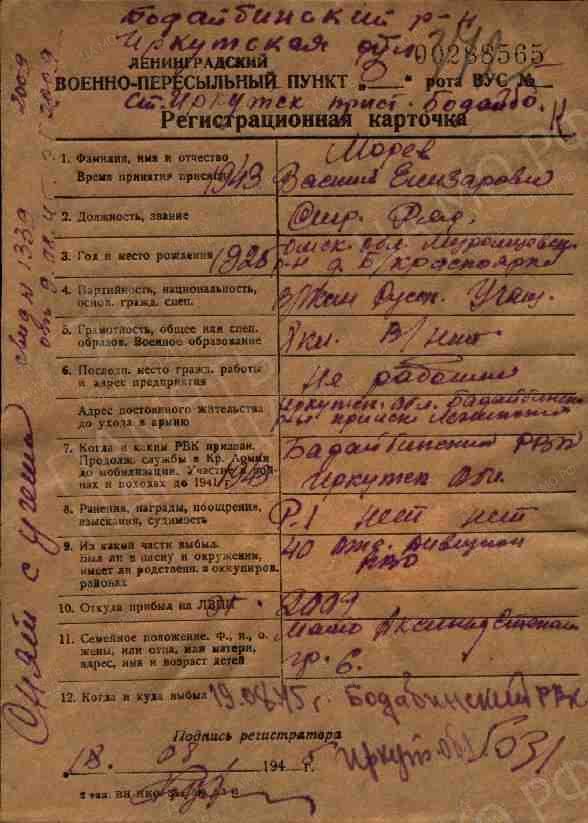 Бодайбинский р-н
Иркутская обл
00288565
ЛЕНИНГРАДСКИЙ
ВОЕННО-ПЕРЕСЫЛЬНЫЙ ПУНКТ „ “ рота ВУС №
Ст. Иркутск прист. Бодайбо.
Регистрационная карточка
1. Фамилия, имя и отчество
Время принятия присяги 1943
Морев
Василий Елизарович
2. Должность, звание
Стр. Ряд.
3. Год и место рождения 1925
Омск. обл. Муромцовск.
р-н д. Б/Красноярка
4. Партийность, национальность,
основ. гражд. спец.
Русск. Учащ.
5. Грамотность, общее или спец.
образов. Военное образование
В/нет
6. Последн. место гражд. работы
и адрес предприятия
Не работал
Адрес постоянного жительства
до ухода в армию
Иркутск. обл. Бадайбинск
прииск
7. Когда и каким РВК призван.
Продолж. службы в Кр. Армии
до мобилизации. Участие в вой-
нах и походах до 1941 г. 1943
Бадайбинский РВК
Иркутск Обл.
8. Ранения, награды, поощрения,
взыскания, судимость
Р. 1 нет нет
9. Из какой части выбыл.
Был ли в плену и окружении,
имеет ли родствен. в оккупиров.
районах
40 дивизион
10. Откуда прибыл на ЛВПП
2009
11. Семейное положение. Ф., и., о.
жены, или отца, или матери,
адрес, имя и возраст детей
Мать Аксинья Степан
гр. 6.
12. Когда и куда выбыл 19.08.45 г. Бодабинский РВК
Иркут-обл
Подпись регистратора
„18. 08 194 5 г.
Снят с учета
2009